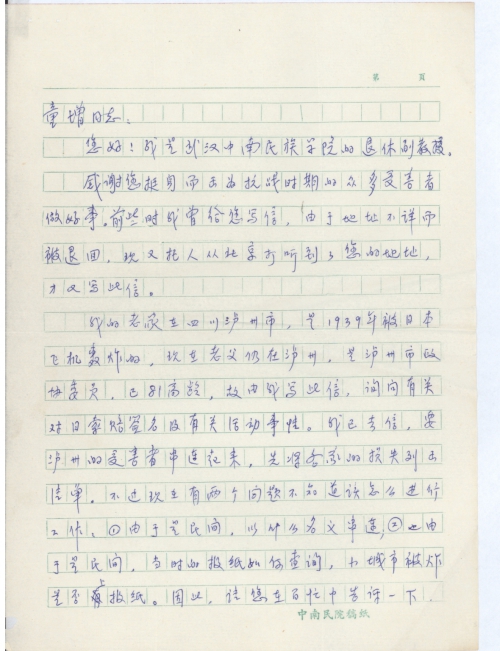 第 頁
童增同志：
您好！我是武汉中南民族学院的退休副教授。
感谢您挺身而出为抗战时期的众多受害者
做好事。前些时我曾给您写信，由于地址不详而
被退回，现又托人从北京打听到了您的地址，
才又写此信。
我的老家在四川泸州市，是1939年被日本
飞机轰炸的，现在老父仍在泸州，是泸州市政
协委员，已到高龄，故由我写此信，询问有关
对日索赔签名及有关活动事性。我已去信，要
泸州的受害者串连起来，先将各家的损失列出
清单。不过现在有两个问题不知道该怎么进行
工作，①由于是民间，以什么名义串连；②也由
于是民间，当时的报纸如何查询，小城市被炸
是否上报纸。因此，请您在百忙中告诉一下，
中南民院稿纸